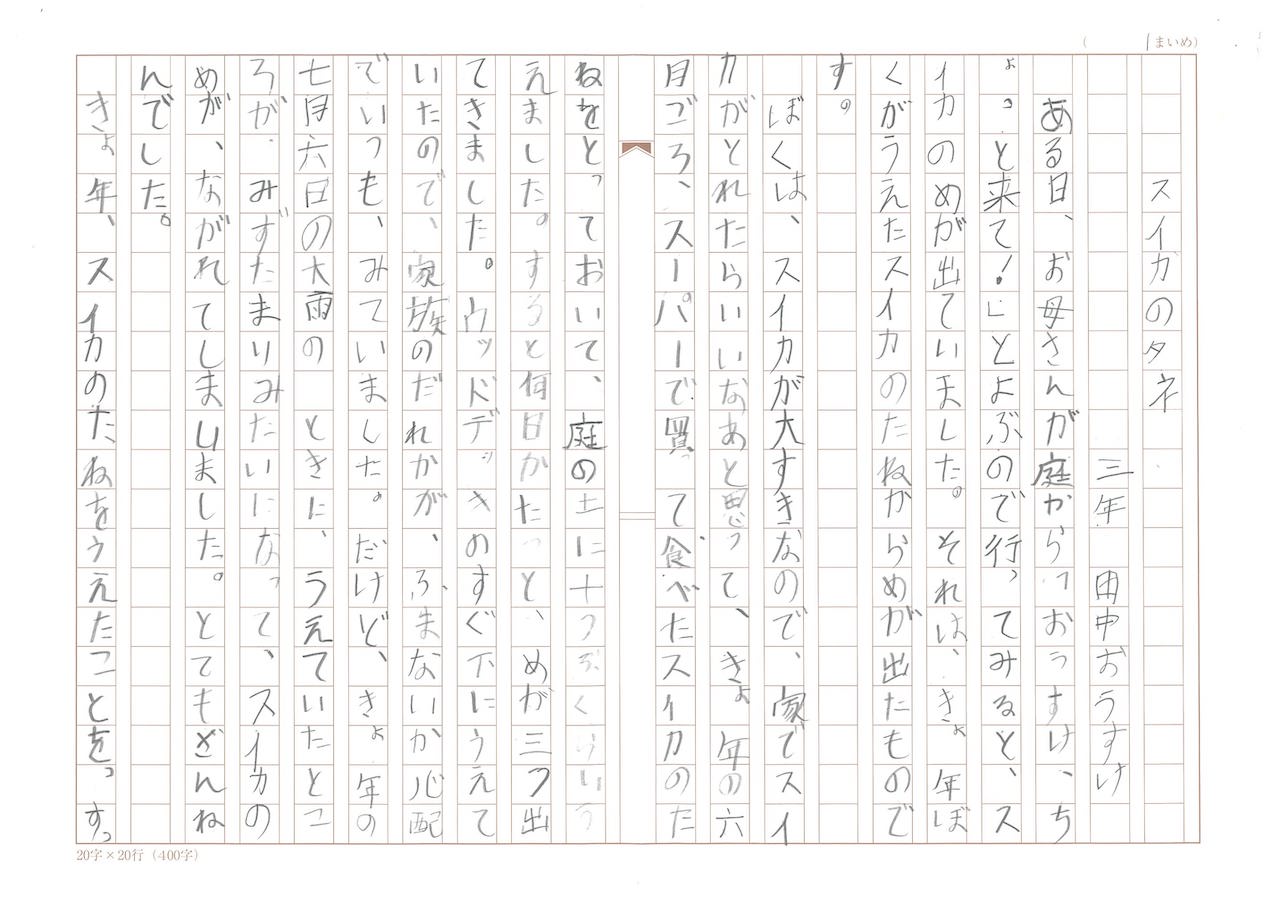 (　1まいめ)
スイカのタネ
三年　田中おうすけ
ある日、お母さんが庭から「おうすけ、ち
ょっと来て！」とよぶので行ってみると、ス
イカのめが出ていました。それは、きょ年ぼ
くがうえたスイカのたねからめが出たもので
す。
ぼくは、スイカが大すきなので、家でスイ
カがとれたらいいなあと思って、きょ年の六
月ごろ、スーパーで買って食べたスイカのた
ねをとっておいて、庭の土に十つぶくらいう
えました。すると何日かたっと、めが三つ出
てきました。ウッドデッキのすぐ下にうえて
いたので、家族のだれかが、ふまないか心配
でいつも、みていました。だけど、きょ年の
七月六日の大雨の　ときに、うえていたとこ
ろが、みずたまりみたいになって、スイカの
めが、ながれてしまいました。とてもざんね
んでした。
きょ年、スイカのたねをうえたことを。すっ
20字×20行（400字）